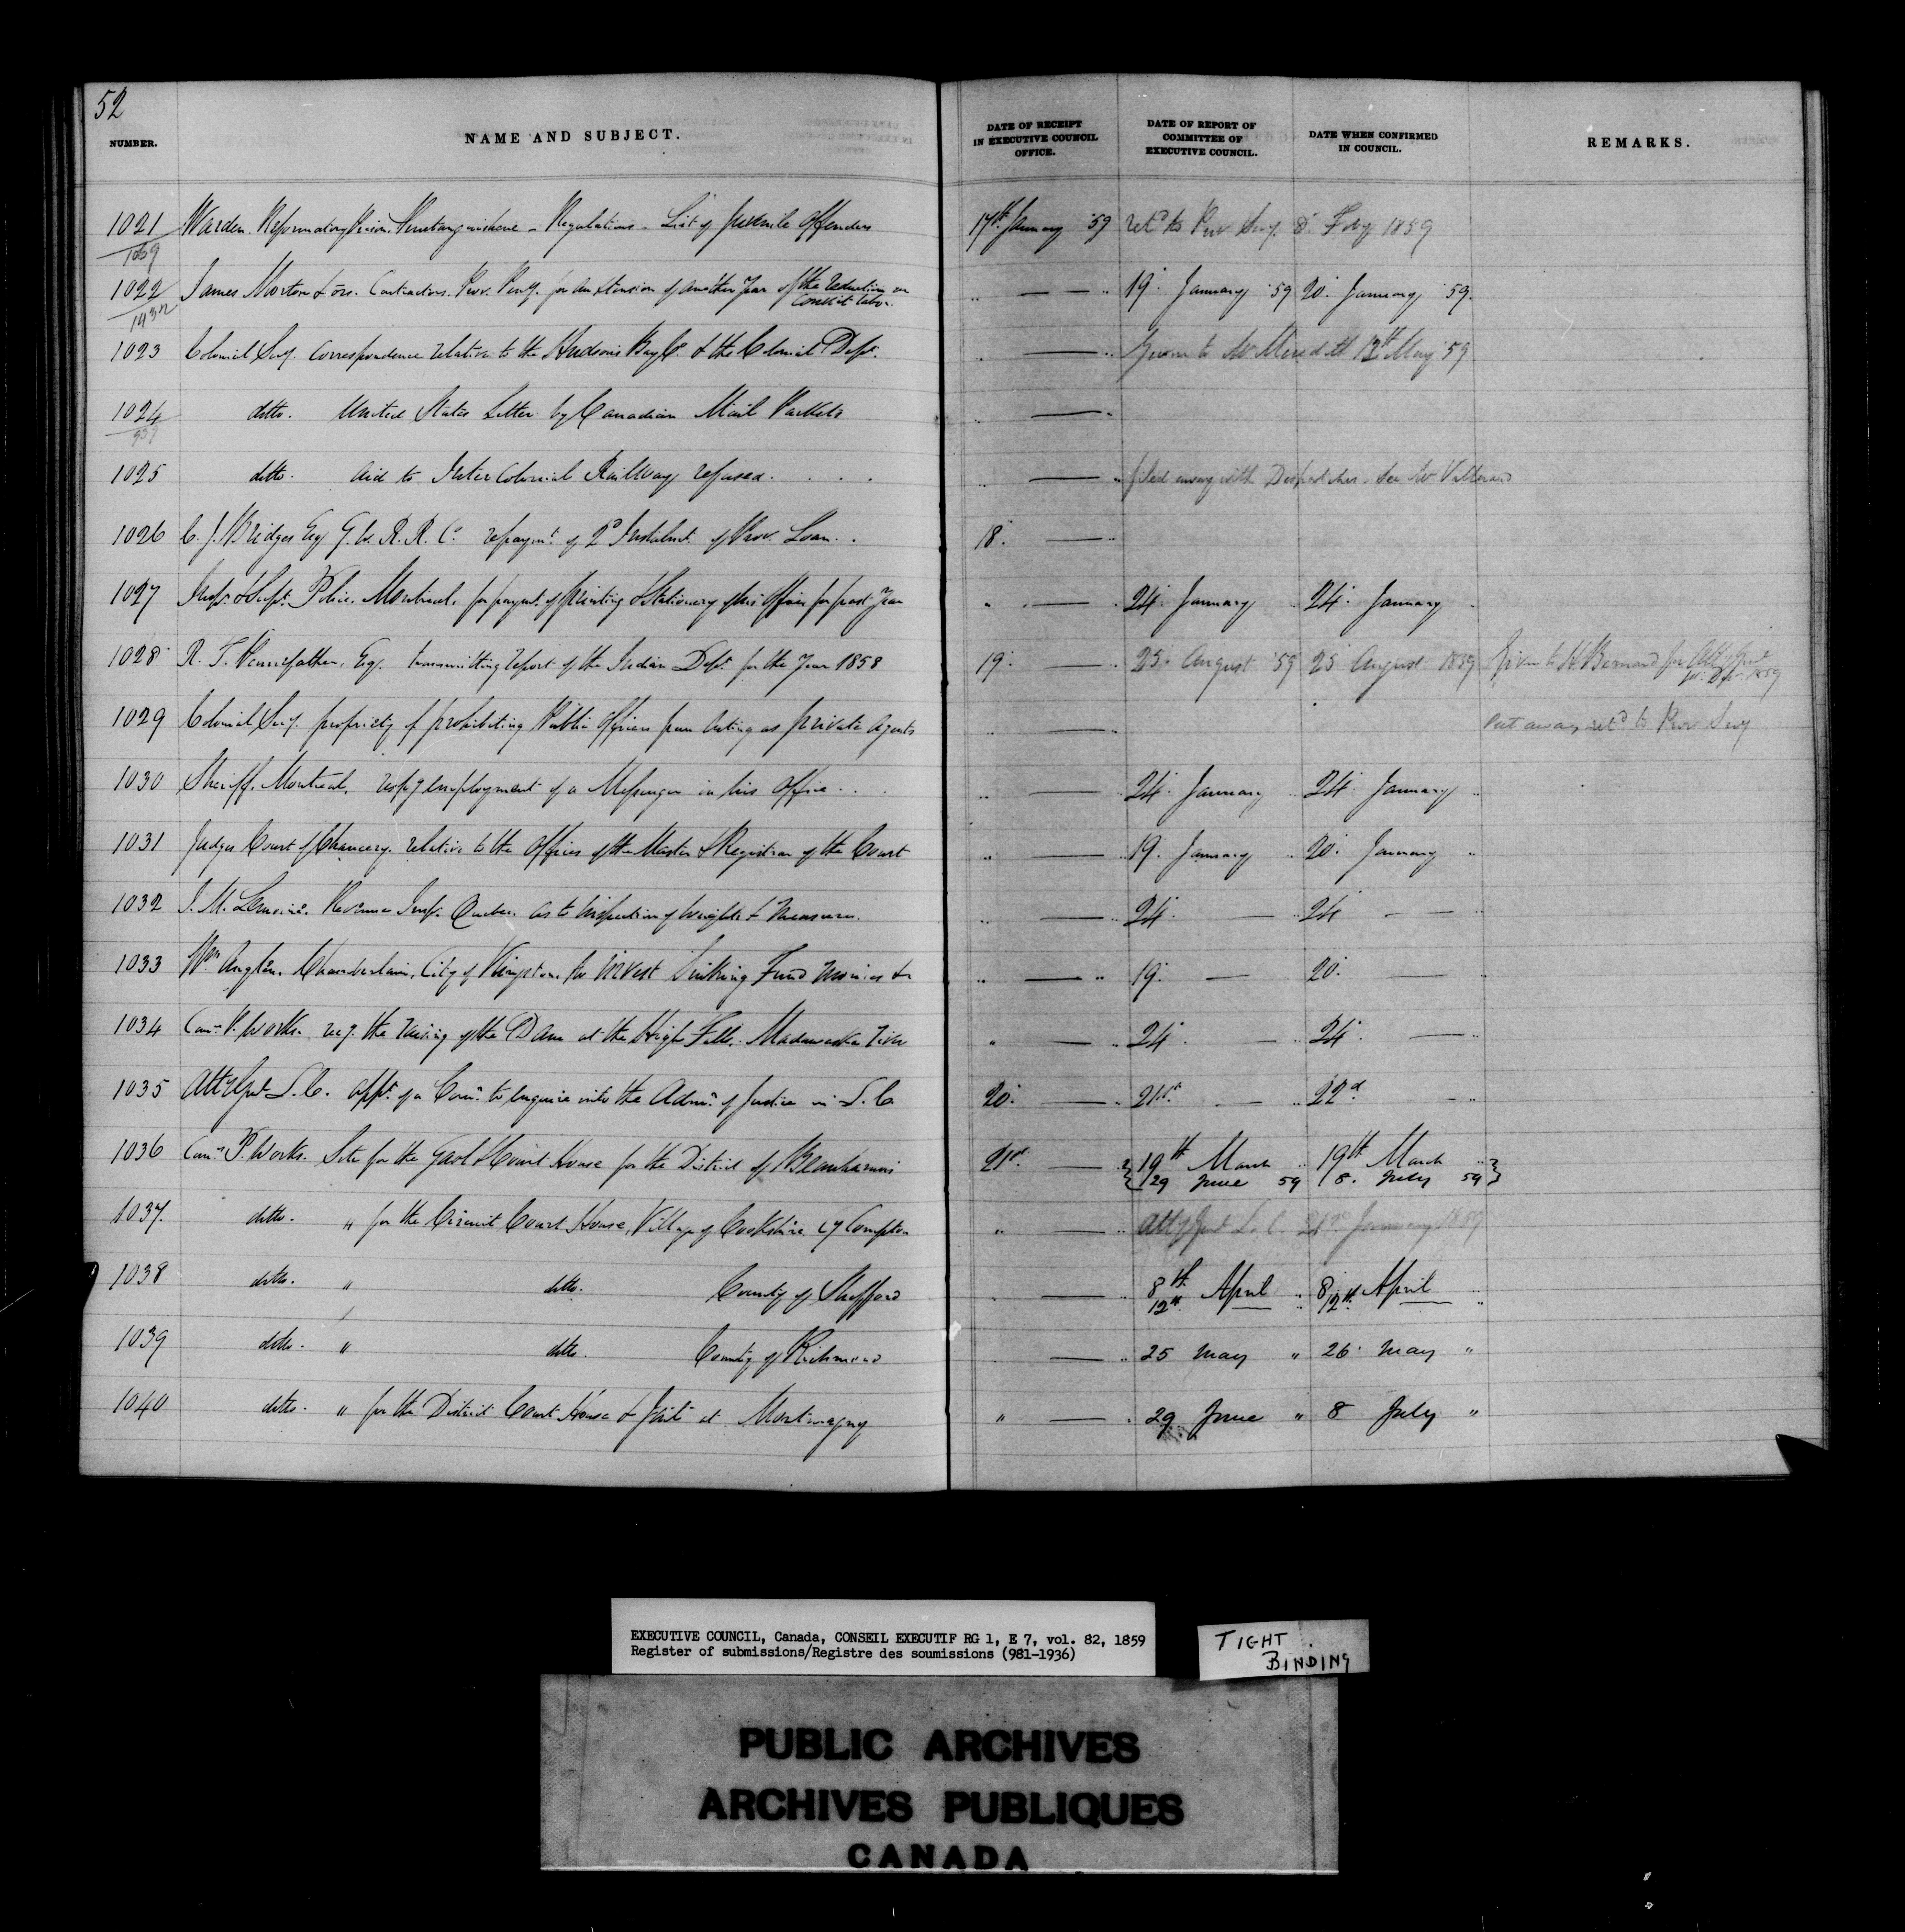 52
NUMBER. NAME AND SUBJECT. DATE OF RECEIPT IN EXECUTIVE COUNCIL OFFICE. DATE OF REPORT OF COMMITTEE OF EXECUTIVE COUNCIL. DATE WHEN CONFIRMED IN COUNCIL. REMARKS.
1021 Warden. Reformatory Prison, Penetanguishene - Regulations - List of Juvenile Offenders 17th January '59 retd to Prov. Secy. 8. Feby 1859
1069
1022 James Morton & ors. Contractors. Prov. Peny. for an extension of another Year of the reduction on Convict labor. " — " 19. January '59 20. January '59.
1432
1023 Colonial Secy. Correspondence relative to the Hudson's Bay Co. & the Colonial Dept. " — " Given to Mr Meredith 12th May '59
1024 ditto. United States Letter by Canadian Mail Packets — "
937
1025 ditto. Aid to Inter Colonial Railway refused. . . . " — " filed away with Despatches. See Mr
1026 C. J. Bridges Esq G. W. R. R. Co. repaymt. of 2d Instalmt. of Prov. Loan. . 18. — "
1027 Inspr. & Supt. Police. Montreal, for paymt. of Printing & Stationery of his Office for past Year " — " 24. January " 24. January "
1028 R. T. Pennefather, Esq. transmitting report of the Indian Dept. for the Year 1858 19. — " 25. August '59 25 August 1859 Given to H. Bernard for Atty Genl 1859
1029 Colonial Secy. propriety of prohibiting Public Officers from Acting as private Agents " — " Put away, retd to Prov. Secy
1030 Sheriff. Montreal, respg employment of a Messenger in his Office. . . " — " 24. January " 24. January "
1031 Judges Court of Chancery. relative to the Offices of the Master & Registrar of the Court " — " 19. January " 20. January "
1032 J. M. Lemoine. Revenue Inspr. Quebec. as to Inspection of Weights & Measures. " — " 24. — " 24 — "
1033 Wm. Anglin. Chamberlain, City of Kingston. to invest Sinking Fund Monies &c " — " 19. — 20. — "
1034 Comr. P. Works. recg. the raising of the Dam at the High Falls. Madawaska River " — " 24. — " 24. — "
1035 Atty Genl L. C. appt. of a Comn. to Enquire into the Admn. of Justice in L. C. 20. — " 21st. — " 22d — "
1036 Comr. P. Works. Site for the Gaol & Court House for the District of Beauharnois 21st. — " 19th March " 19th March "
29 June 59 8. July 59
1037. ditto. " for the Circuit Court House, Village of Cookshire Cy Compton " — " Atty Genl L. C. 21st January 1859
1038 ditto. " ditto. County of Shefford " — " 8th April " 8 April "
12th. " 12th. "
1039 ditto. " ditto. County of Richmond — " 25 May " 26. May "
1040 ditto. " for the District Court House & Jail at Montmagny " — " 29 June " 8 July "
EXECUTIVE COUNCIL, Canada, CONSEIL EXECUTIF RG 1, E 7, vol. 82, 1859
Register of submissions/Registre des soumissions (981-1936)
TIGHT
BINDING
PUBLIC ARCHIVES
ARCHIVES PUBLIQUES
CANADA